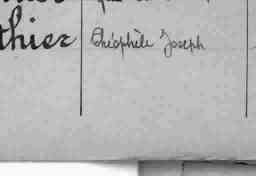 thier Théophile Joseph